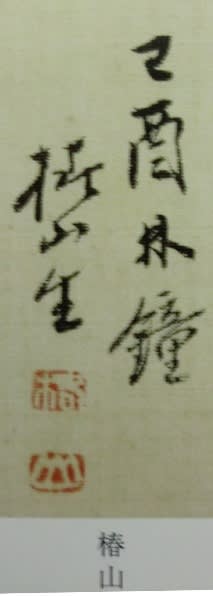 己酉林鐘
椿山生
椿
山
椿山